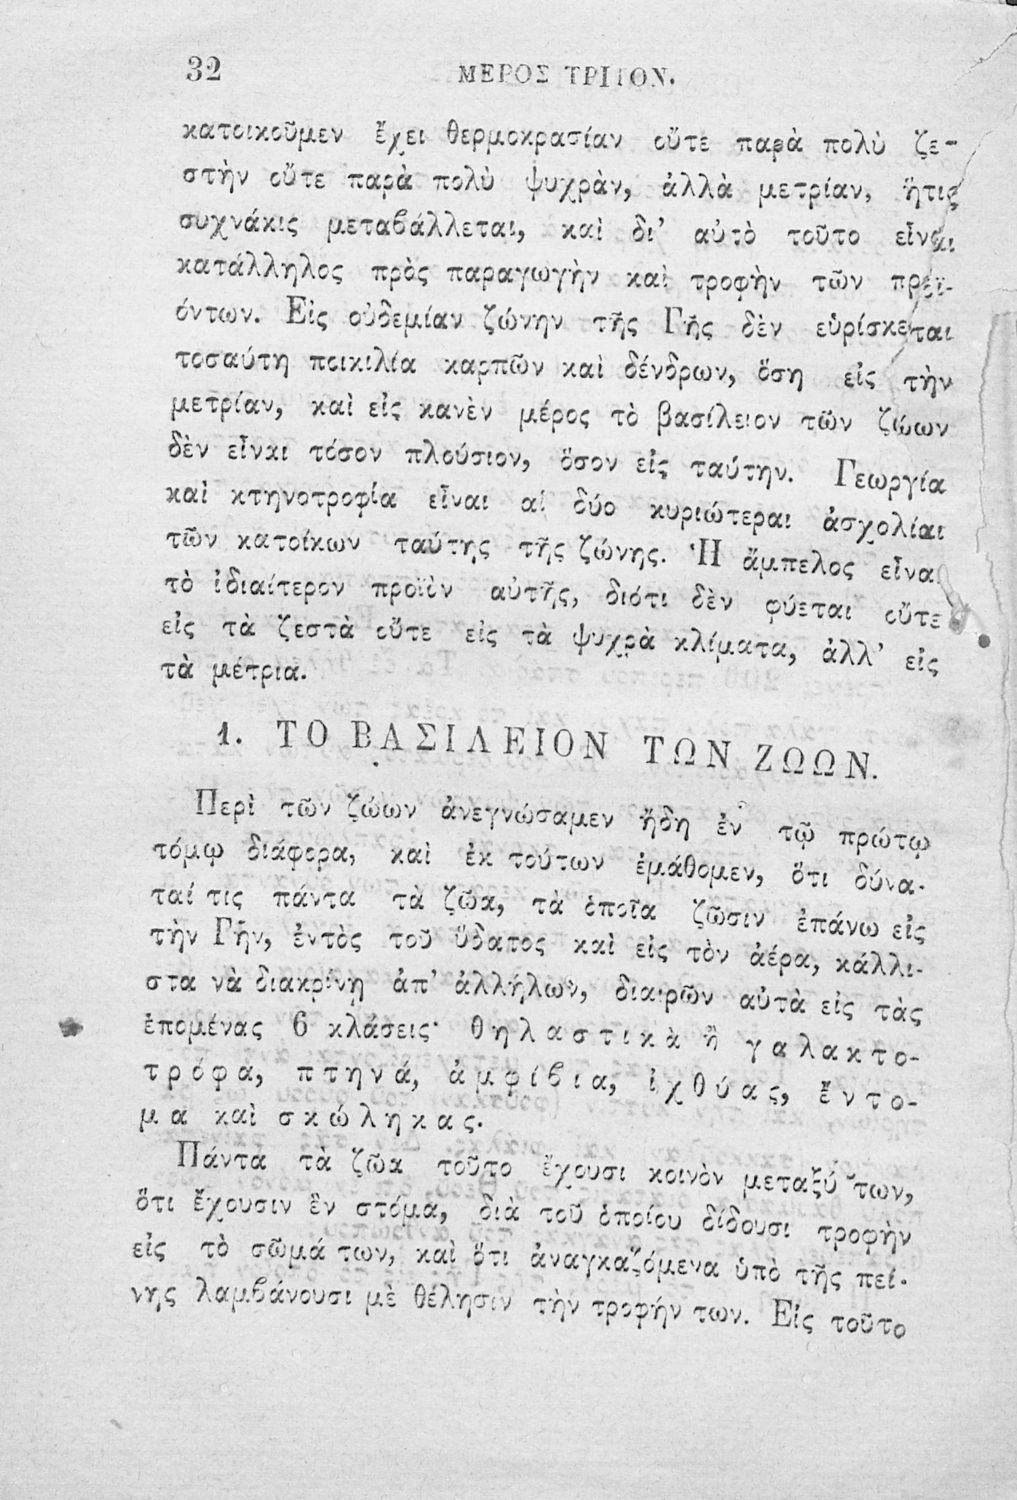 32 ΜΕΡΟΣ ΤΡΙΤΟΝ.
κατοικοῦμεν ἔχει θερμοκρασίαν οὔτε παρὰ πολὺ ζε-
στὴν οὔτε παρὰ πολὺ ψυχρὰν, ἀλλὰ μετρίαν, ἥτις
συχνάκις μεταϐάλλεται, καὶ δι’ αὐτὸ τοῦτο εἶναι
κατάλληλος πρὸς παραγωγὴν καὶ τροφὴν τῶν προϊ-
όντων. Εἰς οὐδεμίαν ζώνην τῆς Γῆς δὲν εὑρίσκεται
τοσαύτη ποικιλία καρπῶν καὶ δένδρων, ὅση εἰς τὴν
μετρίαν, καὶ εἰς κανὲν μέρος τὸ βασίλειον τῶν ζώων
δὲν εἶναι τόσον πλούσιον, ὅσον εἰς ταύτην. Γεωργία
καὶ κτηνοτροφία εἶναι αἱ δύο κυριώτεραι ἀσχολίαι
τῶν κατοίκων ταύτης τῆς ζώνης. Ἡ ἄμπελος εἶναι
τὸ ἰδιαίτερον προϊὸν αὐτῆς, διότι δὲν φύεται οὔτε
εἰς τὰ ζεστὰ οὔτε εἰς τὰ ψυχρὰ κλίματα, ἀλλ’ εἰς
τὰ μέτρια.
1. ΤΟ ΒΑΣΙΛΕΙΟΝ ΤΩΝ ΖΩΩΝ.
Περὶ τῶν ζώων ἀνεγνώσαμεν ἤδη ἐν τῷ πρώτῳ
τόμῳ διάφορα, καὶ ἐκ τούτων ἐμάθομεν, ὅτι δύνα-
ταί τις πάντα τὰ ζῶα, τὰ ὁποῖα ζῶσιν ἐπάνω εἰς
τὴν Γῆν, ἐντὸς τοῦ ὕδατος καὶ εἰς τὸν ἀέρα, κάλλι-
στα νὰ διακρίνῃ ἀπ’ ἀλλήλων, διαιρῶν αὐτὰ εἰς τὰς
ἑπομένας 6 κλάσεις· θηλαστικὰ ἢ γαλακτο-
τρόφα, πτηνά, ἀμφίϐια, ἰχθύας, ἔντο-
μα καὶ σκώληκας.
Πάντα τὰ ζῶα τοῦτο ἔχουσι κοινὸν μεταξύ των,
ὅτι ἔχουσιν ἓν στόμα, διὰ τοῦ ὁποίου δίδουσι τροφὴν
εἰς τὸ σῶμά των, καὶ ὅτι ἀναγκαζόμενα ὑπὸ τῆς πεί-
νης λαμϐάνουσι μὲ θέλησιν τὴν τροφήν των. Εἰς τοῦτο